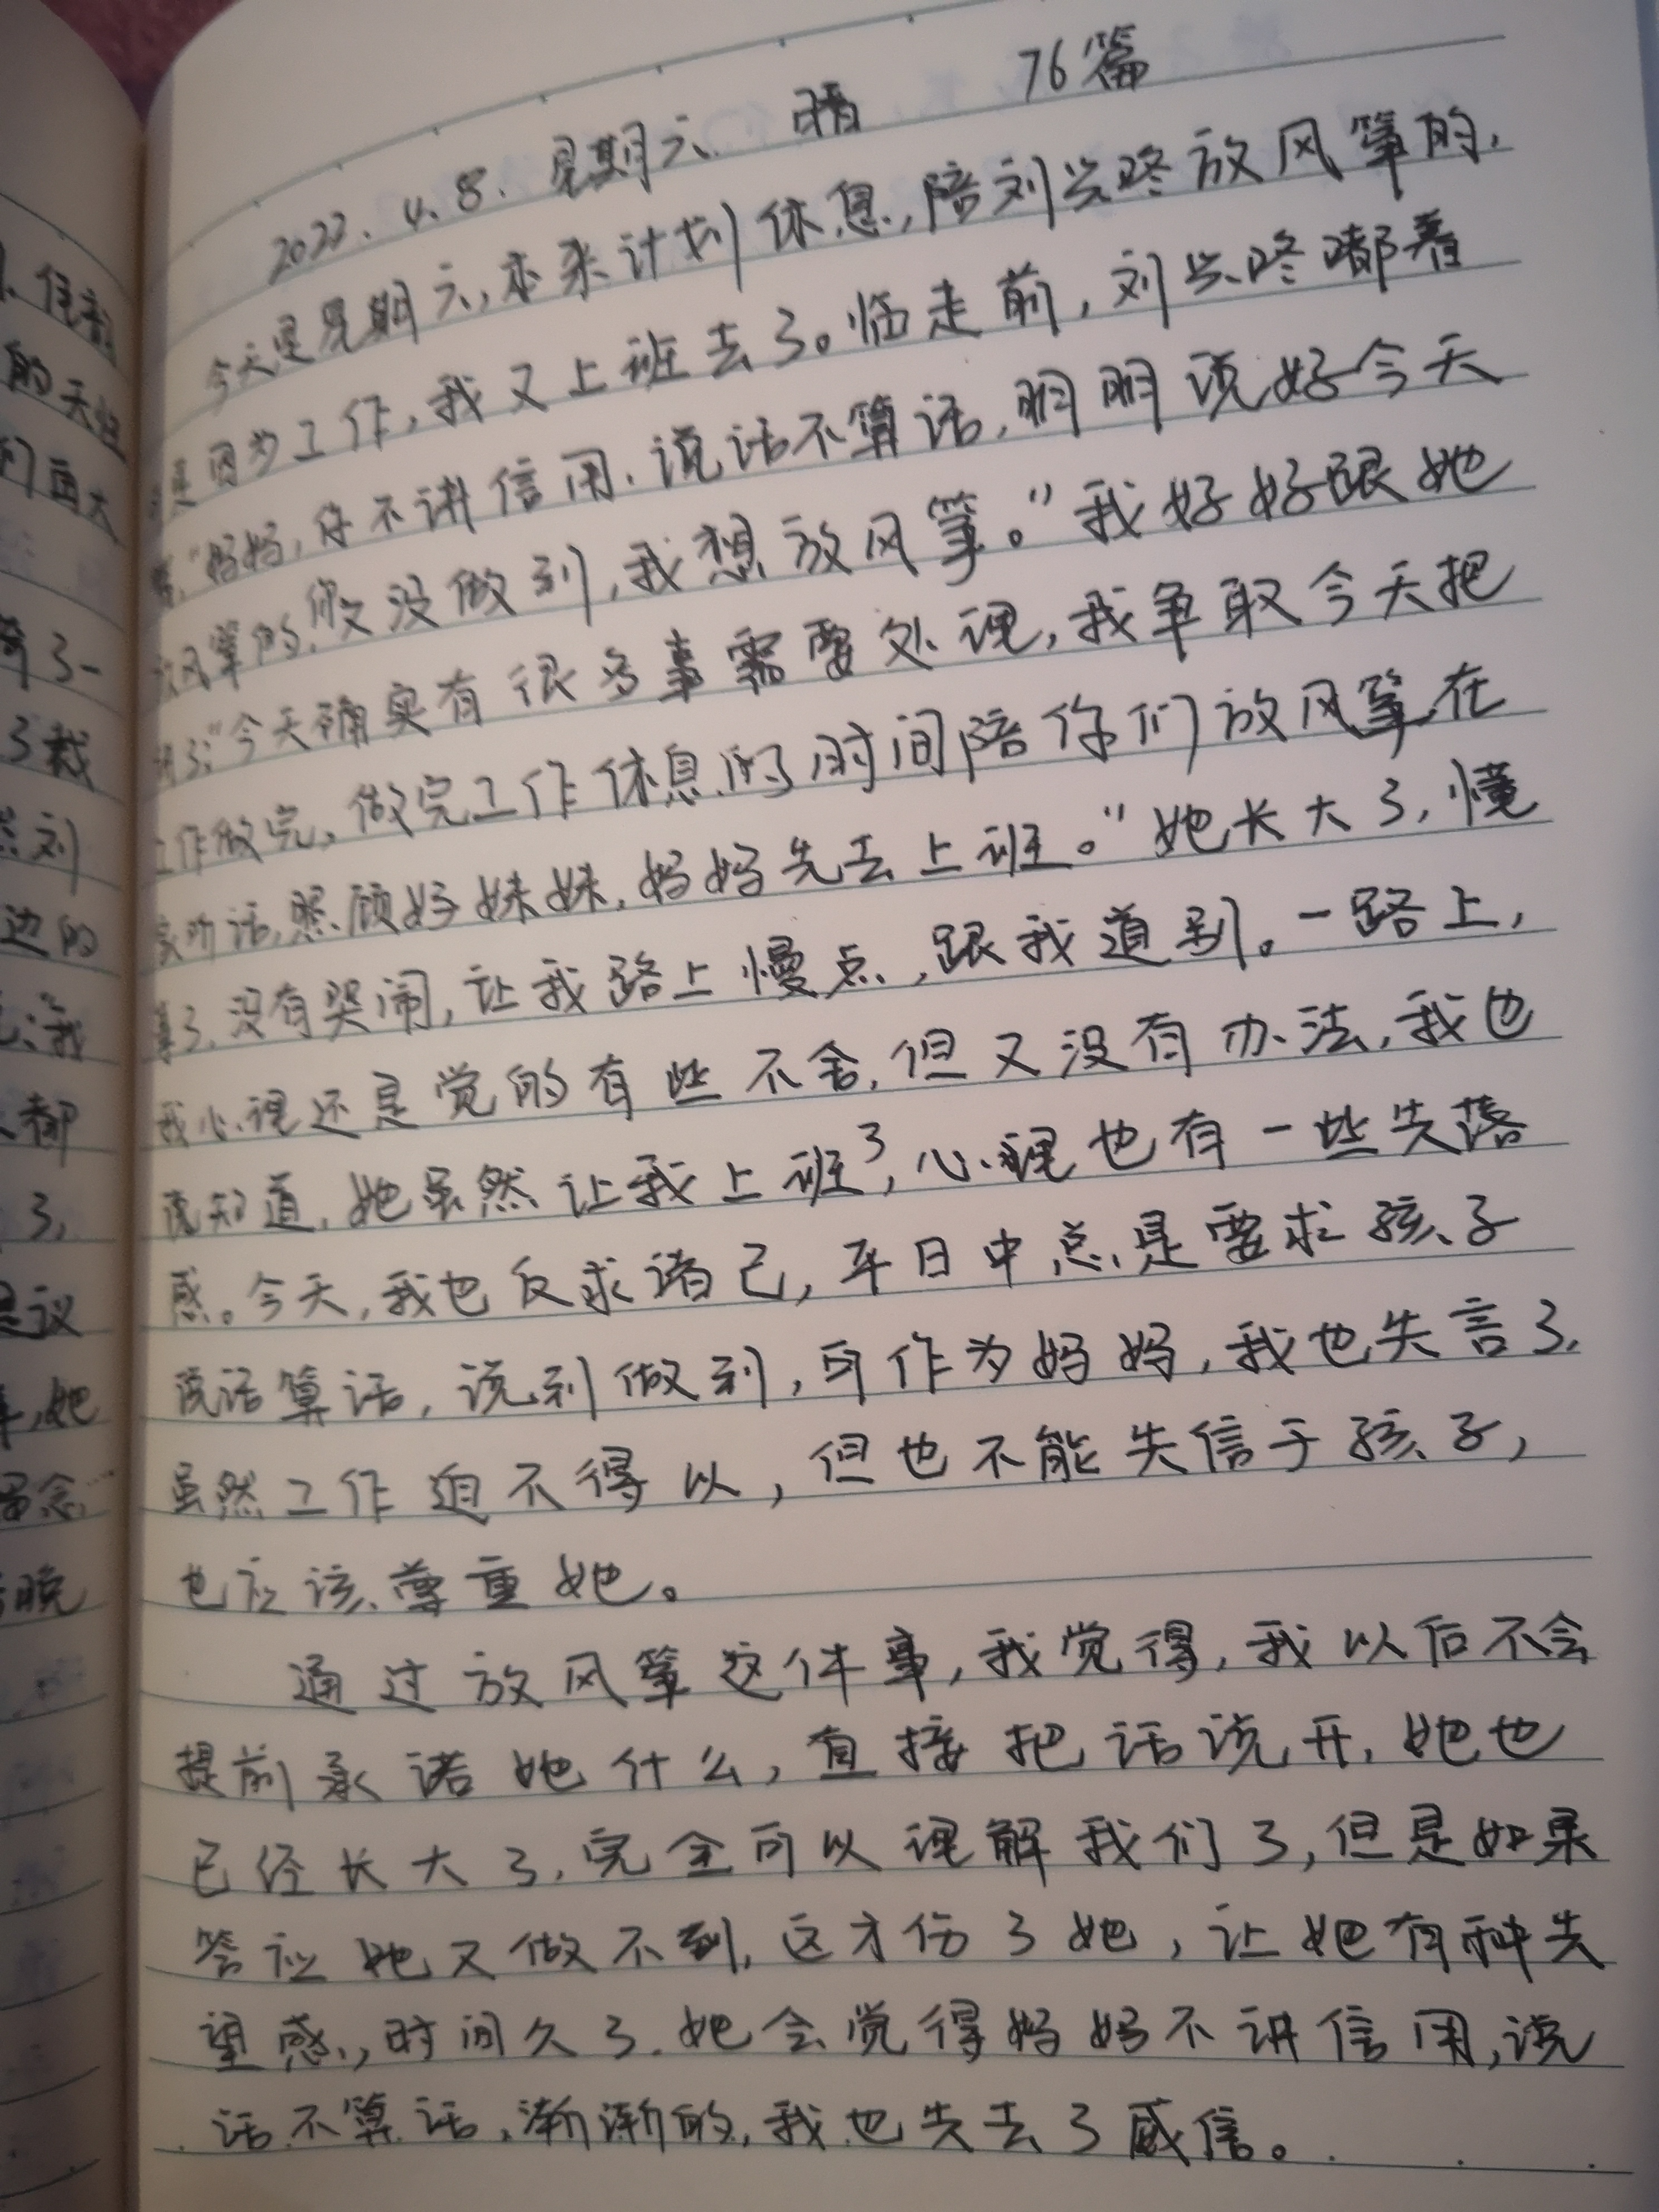 76篇
2023.4.8.星期六 晴
今天是星期六,本来计划休息,陪刘兴咚放风筝的,
是因为工作,我又上班去了。临走前,刘兴咚嘟着
嘴:“妈妈,你不讲信用.说话不算话,明明说好今天
放风筝的,你又没做到,我想放风筝。”我好好跟她
讲了:“今天确实有很多事需要处理,我争取今天把
工作做完,做完工作休息的时间陪你们放风筝,在
家听话,照顾好妹妹,妈妈先去上班。”她长大了,懂
事了.没有哭闹,让我路上慢点,跟我道别。一路上,
我心理还是觉的有些不舍,但又没有办法,我也
说知道,她虽然让我上班了,心理也有一些失落
感。今天,我也反求诸己,平日中总是要求孩子
说话算话,说到做到,可作为妈妈,我也失言了.
虽然工作迫不得以,但也不能失信于孩子,
也应该尊重她。
通过放风筝这件事,我觉得,我以后不会
提前承诺她什么,直接把话说开,她也
已经长大了,完全可以理解我们了,但是如果
答应她又做不到,这才伤了她,让她有种失
望感,时间久了.她会觉得妈妈不讲信用,说
话不算话,渐渐的,我也失去了威信。
信
的天
们画大
了一
了裁
刘
边的
我
都
了,
是议
,她
留念
晚